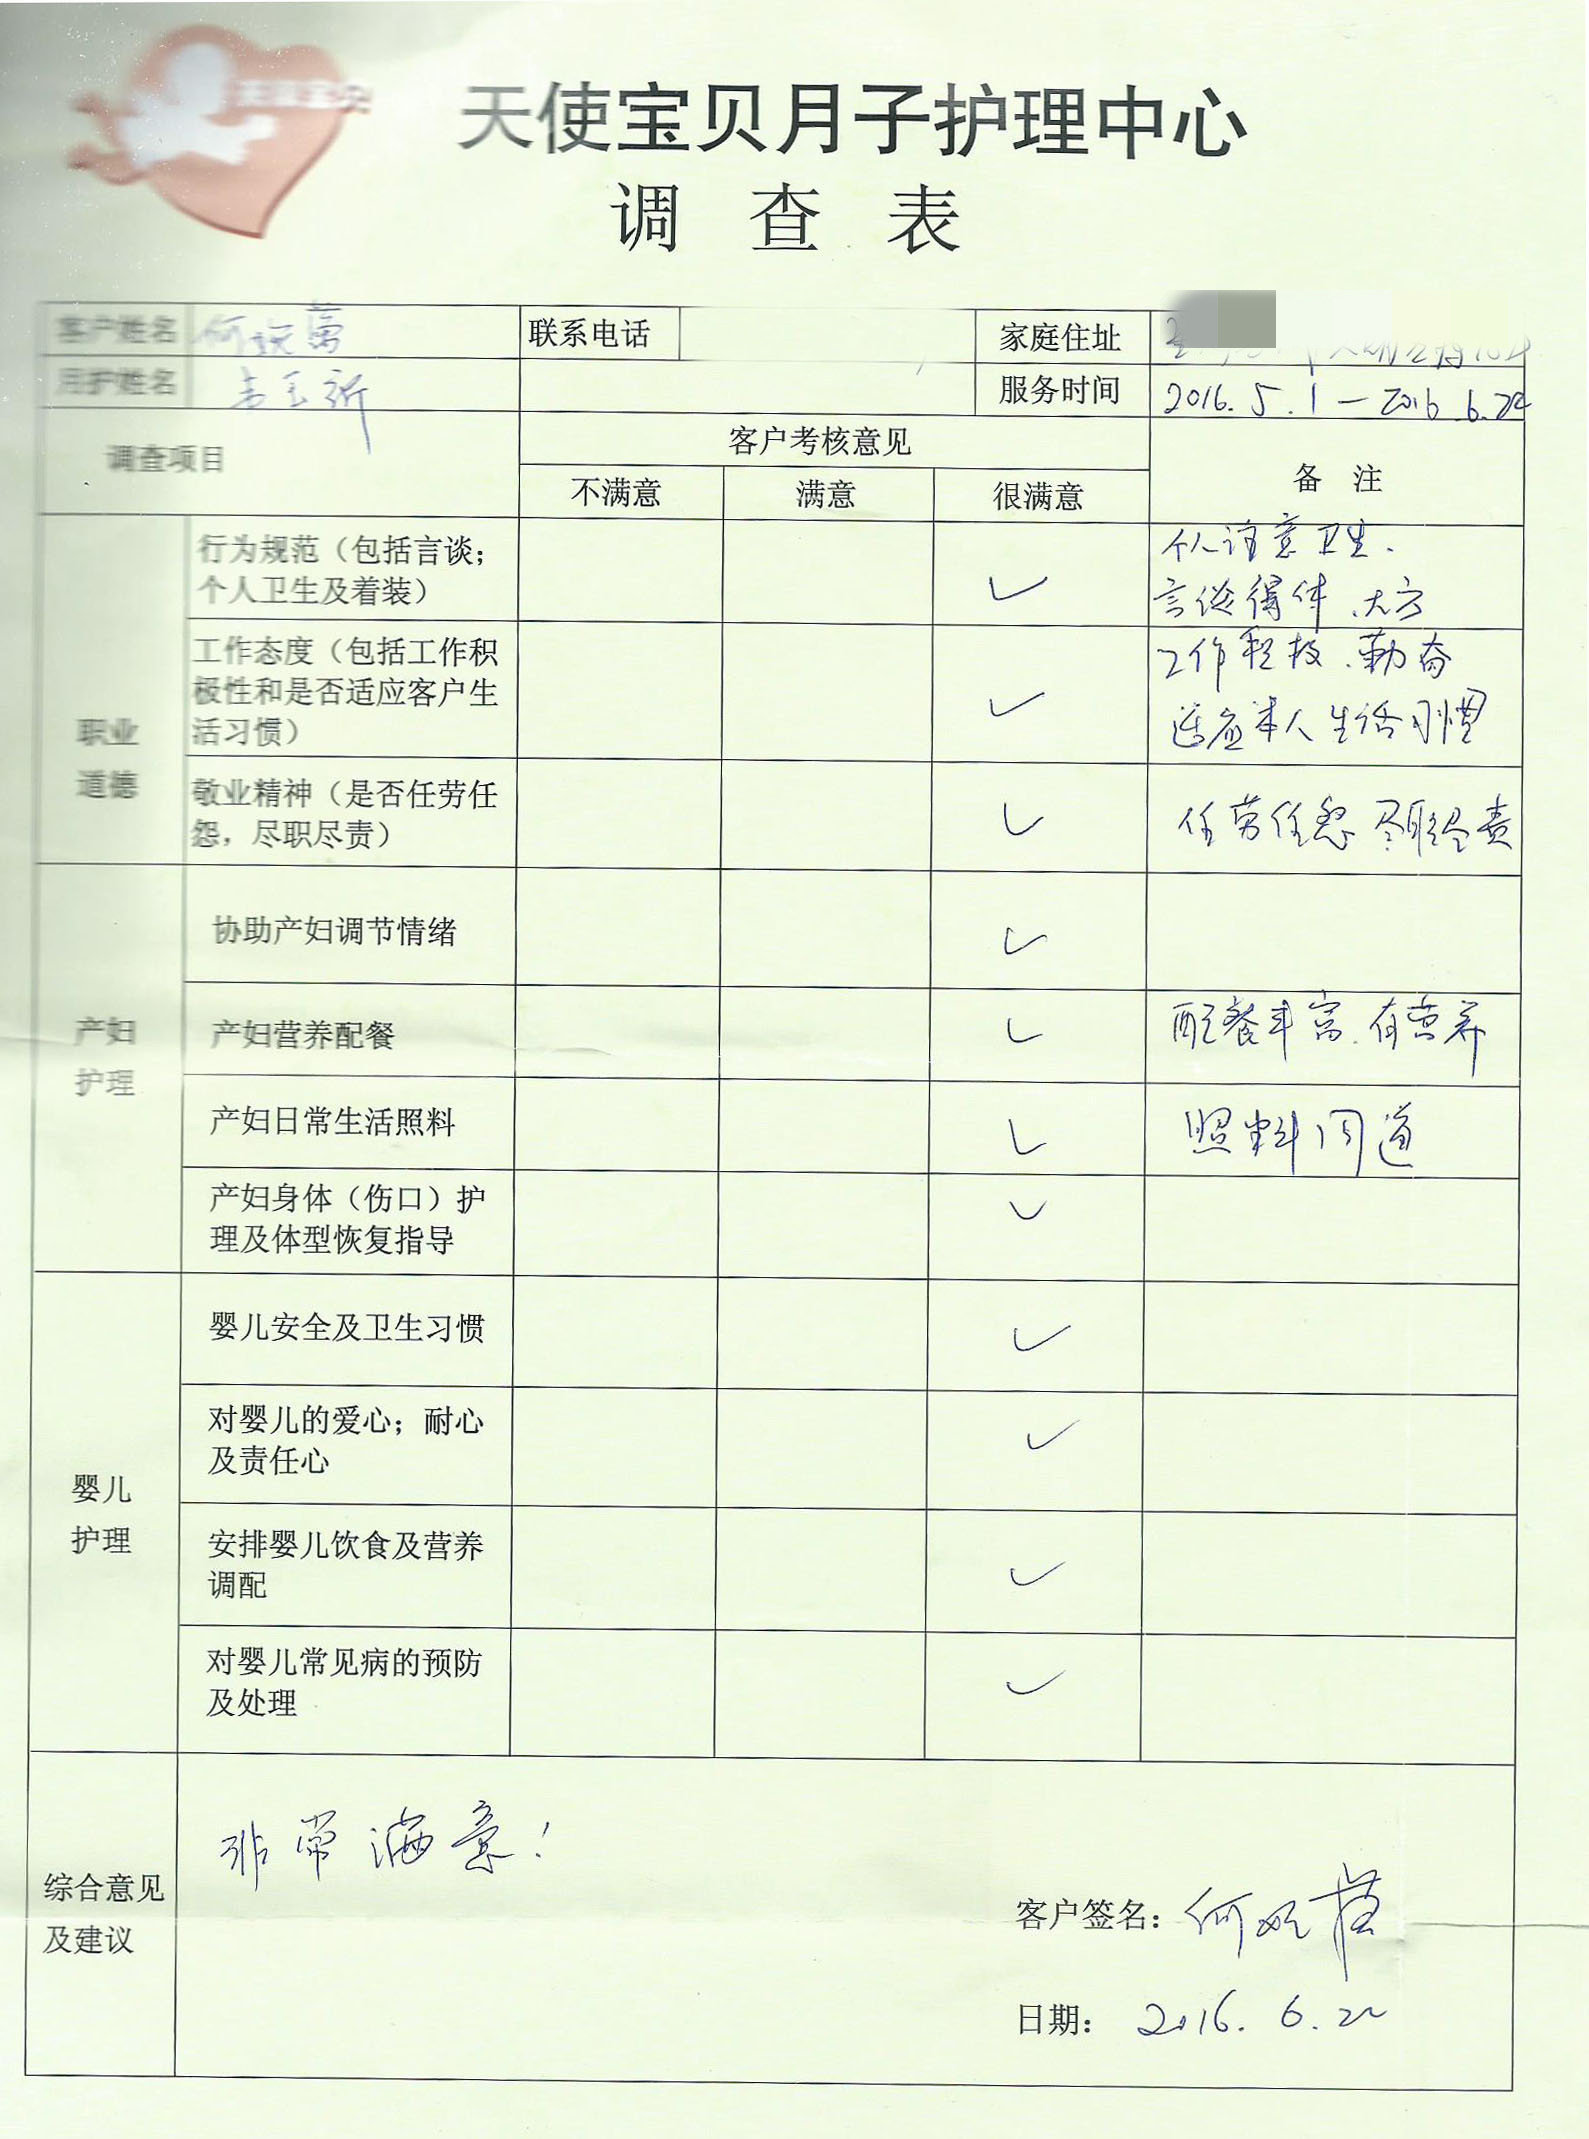 天使宝贝月子护理中心
调 查 表
客户姓名 何 联系电话 家庭住址
月护姓名 服务时间 2016.5.1—2016 6.22
调查项目 客户考核意见 备 注
不满意 满意 很满意
职业
道德
行为规范（包括言谈；
个人卫生及着装）
✓
个人注意卫生.
言谈得体、大方
工作态度（包括工作积
极性和是否适应客户生
活习惯）
✓
工作积极、勤奋
适应本人生活习惯
敬业精神（是否任劳任
怨，尽职尽责）
✓
任劳任怨 尽职尽责
产妇
护理
协助产妇调节情绪 ✓
产妇营养配餐 ✓ 配餐丰富.有营养
产妇日常生活照料 ✓ 照料周道
产妇身体（伤口）护
理及体型恢复指导
✓
婴儿
护理
婴儿安全及卫生习惯 ✓
对婴儿的爱心；耐心
及责任心
✓
安排婴儿饮食及营养
调配
✓
对婴儿常见病的预防
及处理
✓
综合意见
及建议
非常满意！
客户签名：何
日期： 2016.6.22